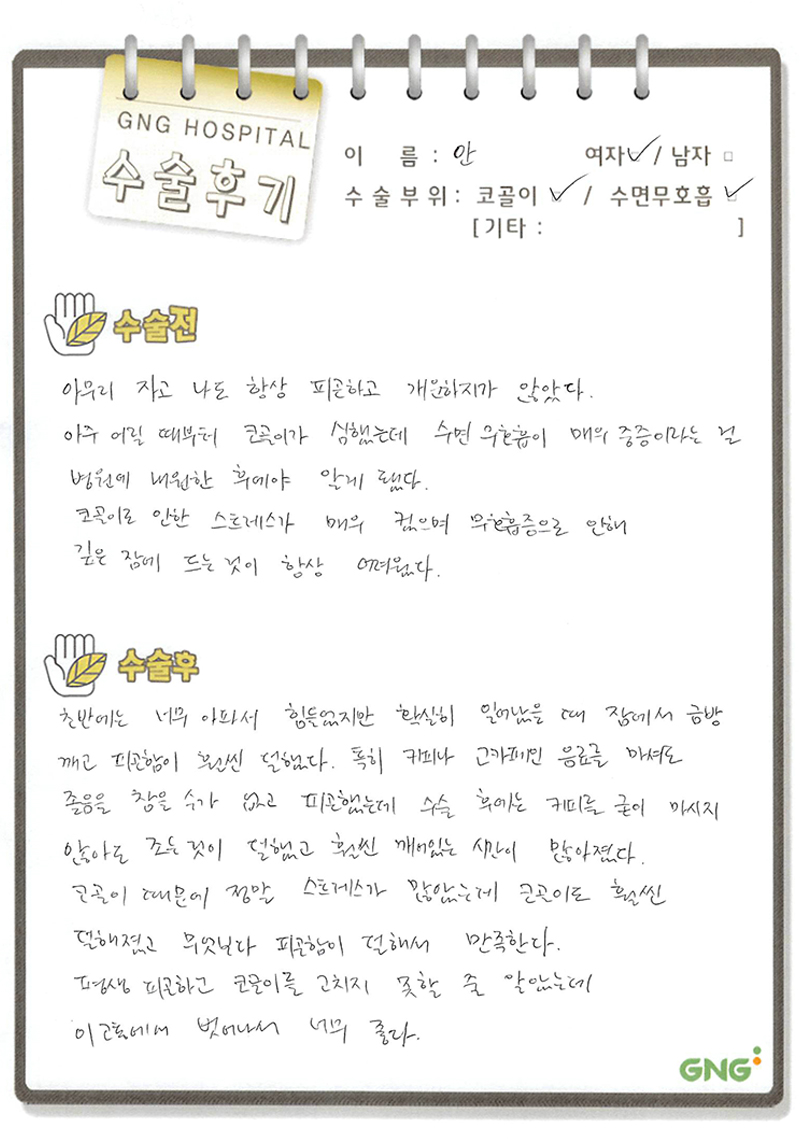 GNG HOSPITAL
수술후기
이 름 : 안 여자 ✓ / 남자 □
수술부위 : 코골이 ✓ / 수면무호흡 ✓
[기타 : ]
수술전
아무리 자고 나도 항상 피곤하고 개운하지가 않았다.
아주 어릴 때부터 코골이가 심했는데 수면 무호흡이 매우 중증이라는 걸
병원에 내원한 후에야 알게 됐다.
코골이로 인한 스트레스가 매우 컸으며 무호흡증으로 인해
깊은 잠에 드는 것이 항상 어려웠다.
수술후
초반에는 너무 아파서 힘들었지만 확실히 일어났을 때 잠에서 금방
깨고 피곤함이 훨씬 덜했다. 특히 커피나 고카페인 음료를 마셔도
졸음을 참을 수가 없고 피곤했는데 수술 후에는 커피를 굳이 마시지
않아도 조는 것이 덜했고 훨씬 깨어있는 시간이 많아졌다.
코골이 때문에 정말 스트레스가 많았는데 코골이도 훨씬
덜해졌고 무엇보다 피곤함이 덜해서 만족한다.
평생 피곤하고 코골이를 고치지 못할 줄 알았는데
이 고통에서 벗어나서 너무 좋다.
GNG